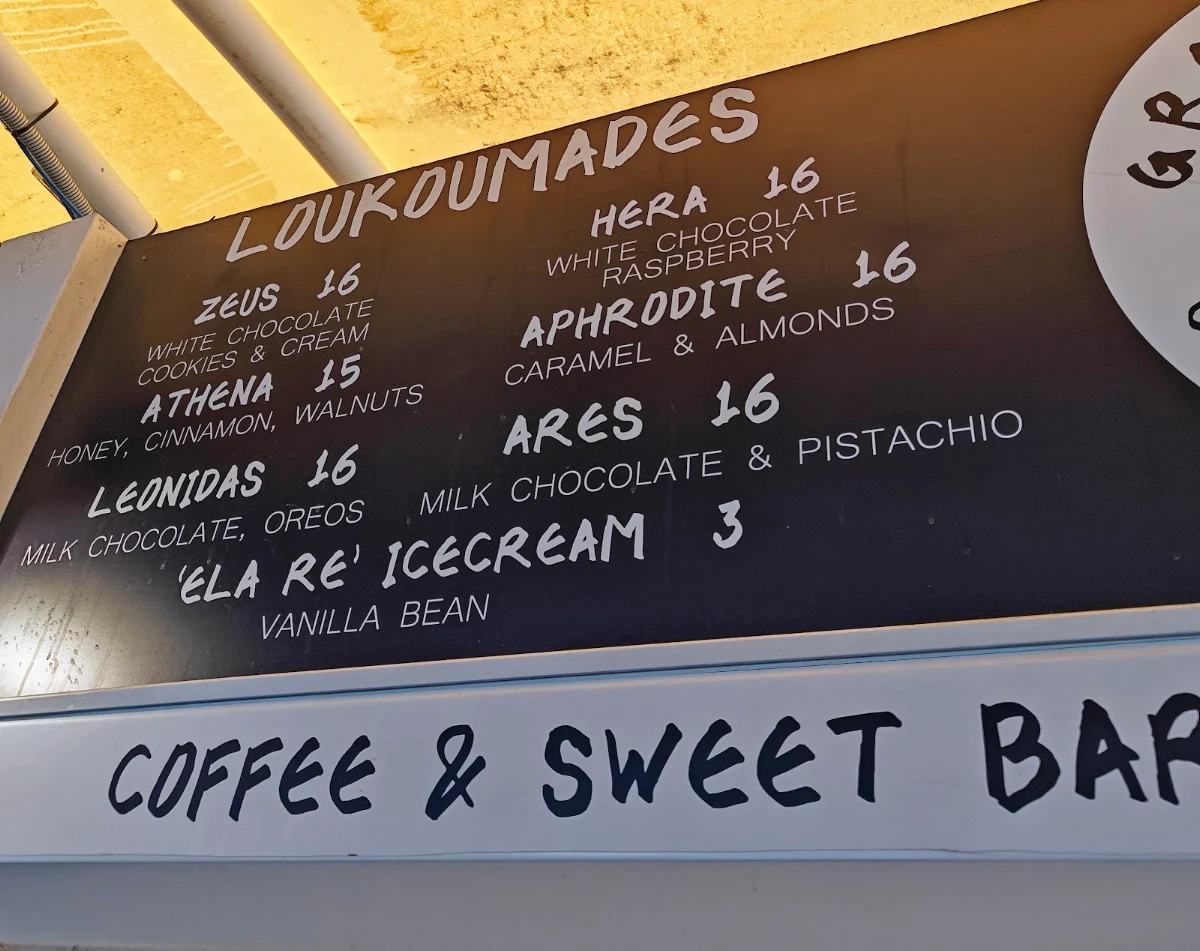 LOUKOUMADES
ZEUS 16
WHITE CHOCOLATE
COOKIES & CREAM
ATHENA 15
HONEY, CINNAMON, WALNUTS
LEONIDAS 16
MILK CHOCOLATE, OREOS
HERA 16
WHITE CHOCOLATE
RASPBERRY
APHRODITE 16
CARAMEL & ALMONDS
ARES 16
MILK CHOCOLATE & PISTACHIO
'ELA RE' ICECREAM 3
VANILLA BEAN
COFFEE & SWEET BAR